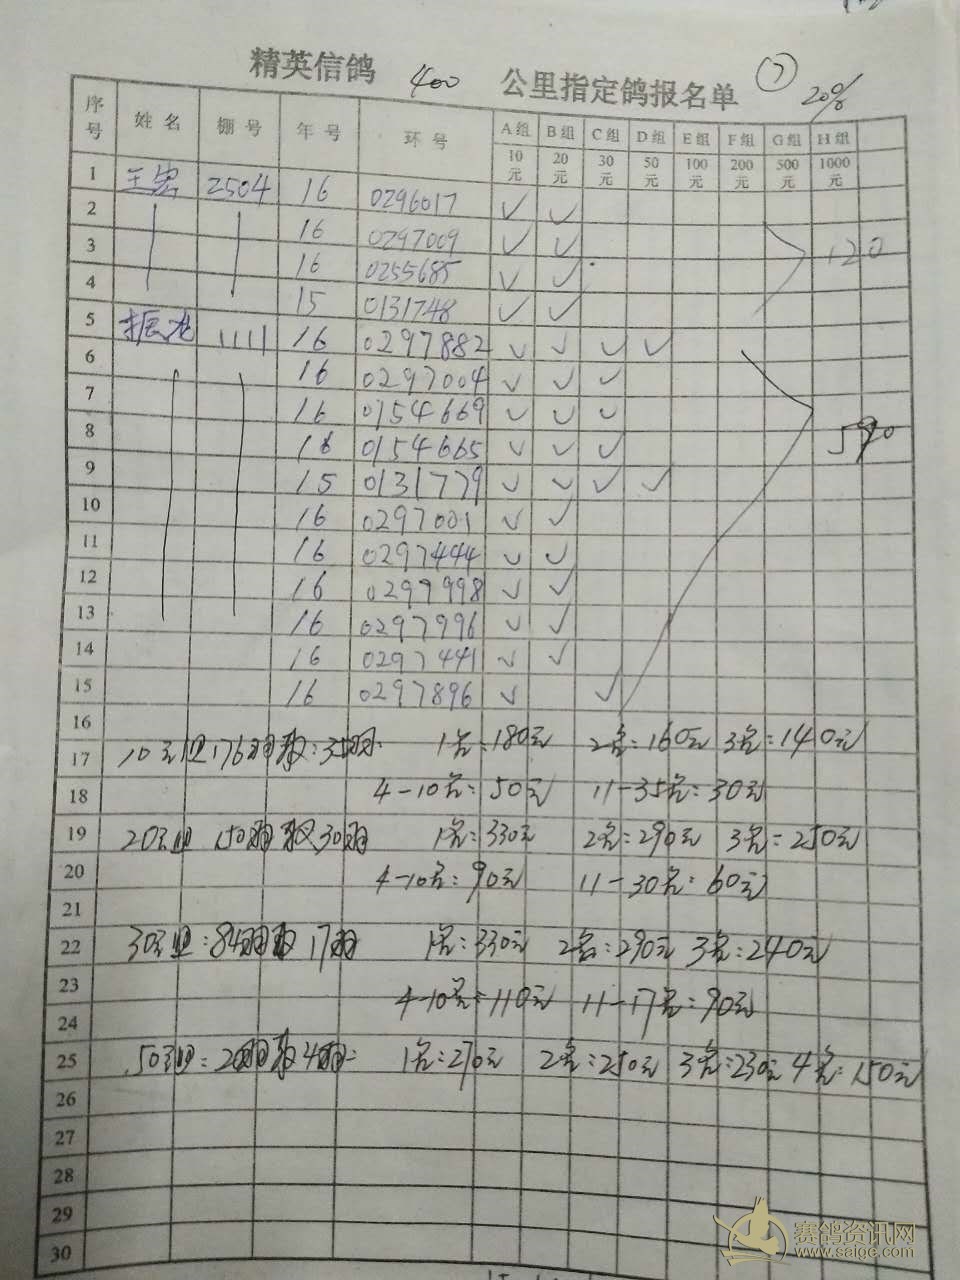 精英信鸽 400 公里指定鸽报名单 ⑦ 20%
序号 姓名 棚号 年号 环号 A组 B组 C组 D组 E组 F组 G组 H组
10元 20元 30元 50元 100元 200元 500元 1000元
1 王 2504 16 0296017 ✓ ✓
2 16 0297009 ✓ ✓ 120
3 16 0255685 ✓ ✓
4 15 0131748 ✓ ✓
5 振龙 1111 16 0297882 ✓ ✓ ✓ ✓
6 16 0297004 ✓ ✓ ✓
7 16 0154669 ✓ ✓ ✓
8 16 0154665 ✓ ✓ ✓
9 15 0131779 ✓ ✓ ✓ ✓
10 16 0297001 ✓ ✓
11 16 0297444 ✓ ✓
12 16 0297998 ✓ ✓
13 16 0297996 ✓ ✓
14 16 0297441 ✓ ✓
15 16 0297896 ✓ ✓
16
17 10元组176羽取:35羽: 1名:180元 2名:160元 3名:140元
18 4-10名:50元 11-35名:30元
19 20元组 150羽取30羽 1名:330元 2名:290元 3名:250元
20 4-10名:90元 11-30名:60元
21
22 30元组:84羽取17羽 1名:330元 2名:290元 3名:240元
23 4-10名:110元 11-17名:90元
24
25 50元组:20羽取4羽: 1名:270元 2名:250元 3名:230元 4名:150元
26
27
28
29
30
赛鸽资讯网
www.saige.com